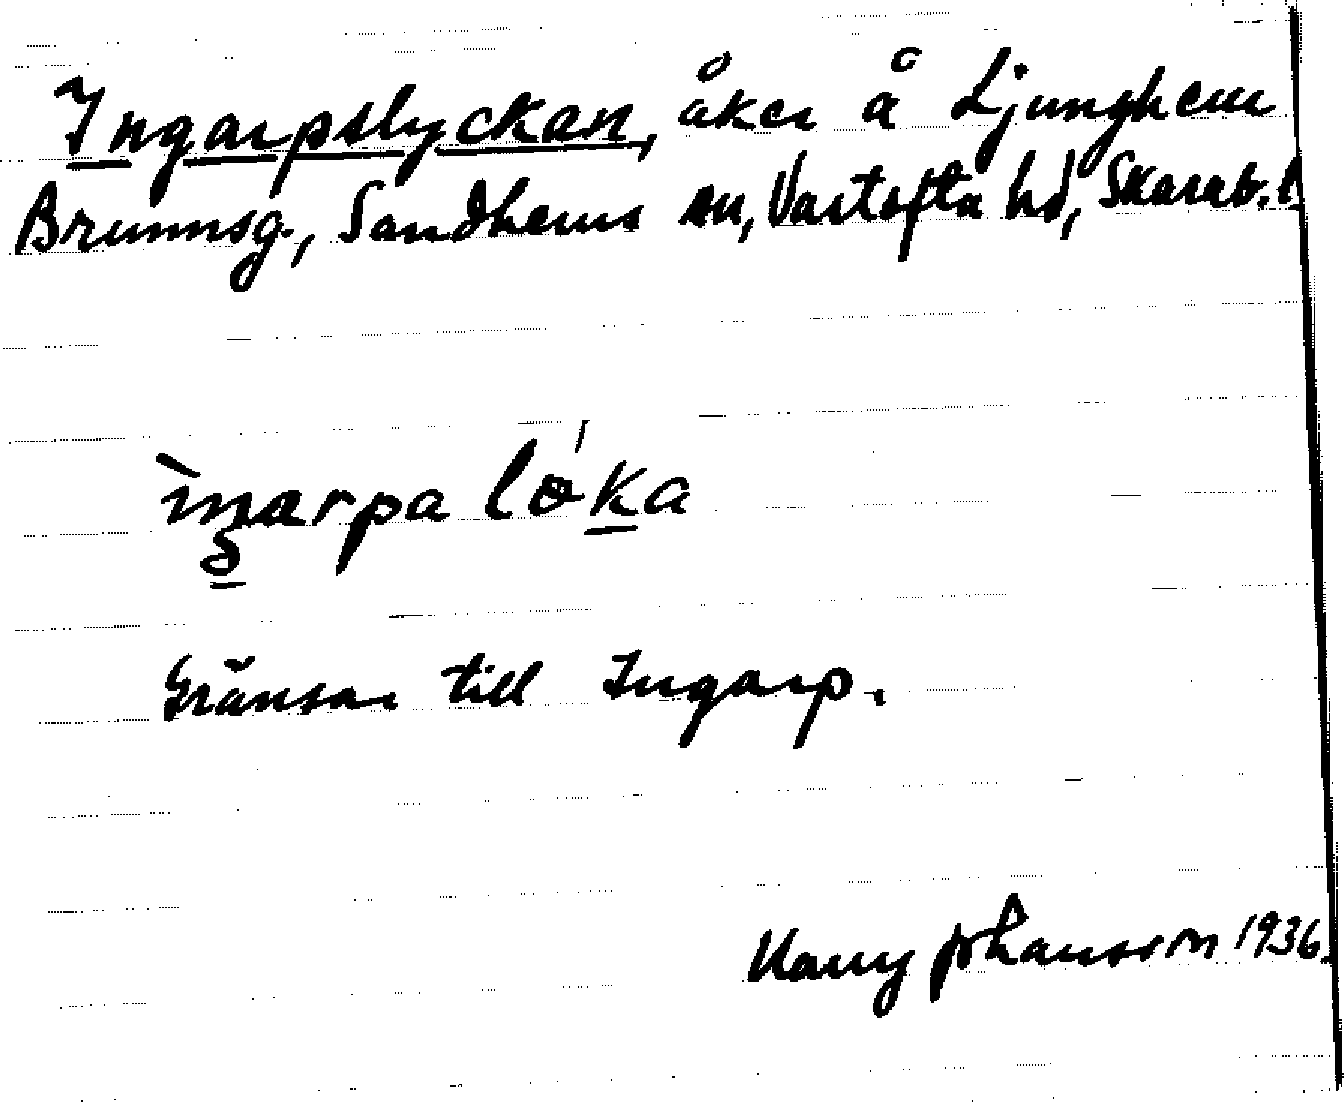 Ingarpslyckan, åker å Ljunghem
Brunnsg., Sandhems sn, Vartofta hd, Skarab. l.
Gränsar till Ingarp.
Harry Johansson 1936.